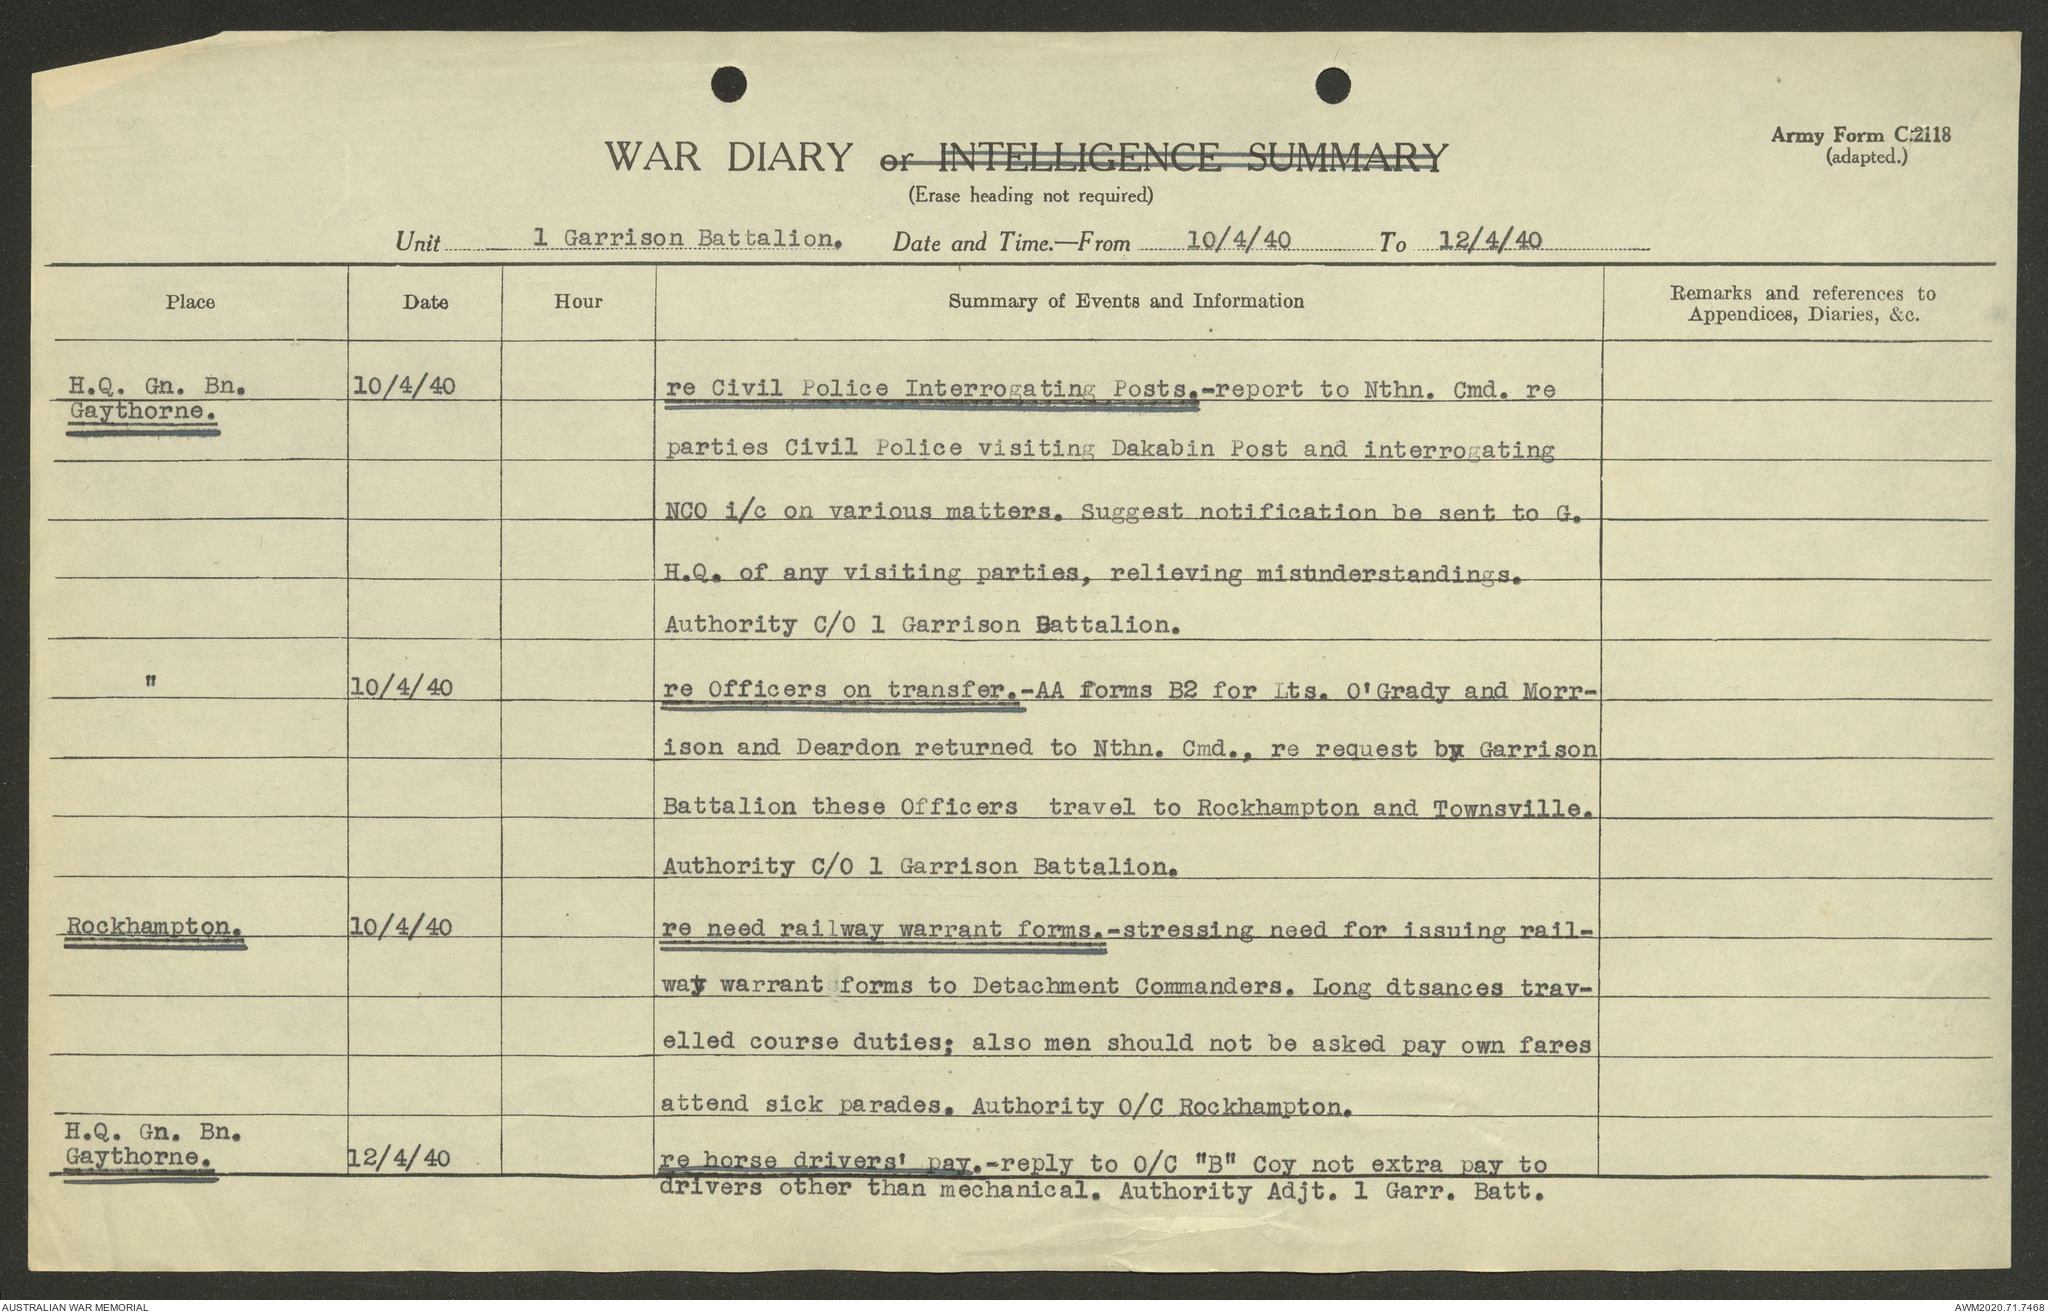 Army Form C.2118
(adapted.)
WAR DIARY or INTELLIGENCE SUMMARY
(Erase heading not required)
Unit 1 Garrison Battalion. Date and Time.—From 10/4/40 To 12/4/40
Place Date Hour Summary of Events and Information Remarks and references to
Appendices, Diaries, &c.
H.Q. Gn. Bn. 10/4/40 re Civil Police Interrogating Posts.-report to Nthn. Cmd. re
Gaythorne.
parties Civil Police visiting Dakabin Post and interrogating
NCO i/c on various matters. Suggest notification be sent to G.
H.Q. of any visiting parties, relieving misunderstandings.
Authority C/O 1 Garrison Battalion.
" 10/4/40 re Officers on transfer.-AA forms B2 for Lts. O'Grady and Morr-
ison and Deardon returned to Nthn. Cmd., re request by Garrison
Battalion these Officers travel to Rockhampton and Townsville.
Authority C/O 1 Garrison Battalion.
Rockhampton. 10/4/40 re need railway warrant forms.-stressing need for issuing rail-
way warrant forms to Detachment Commanders. Long dtsances trav-
elled course duties; also men should not be asked pay own fares
attend sick parades. Authority O/C Rockhampton.
H.Q. Gn. Bn.
Gaythorne. 12/4/40 re horse drivers' pay.-reply to O/C "B" Coy not extra pay to
drivers other than mechanical. Authority Adjt. 1 Garr. Batt.
AUSTRALIAN WAR MEMORIAL AWM2020.71.7468